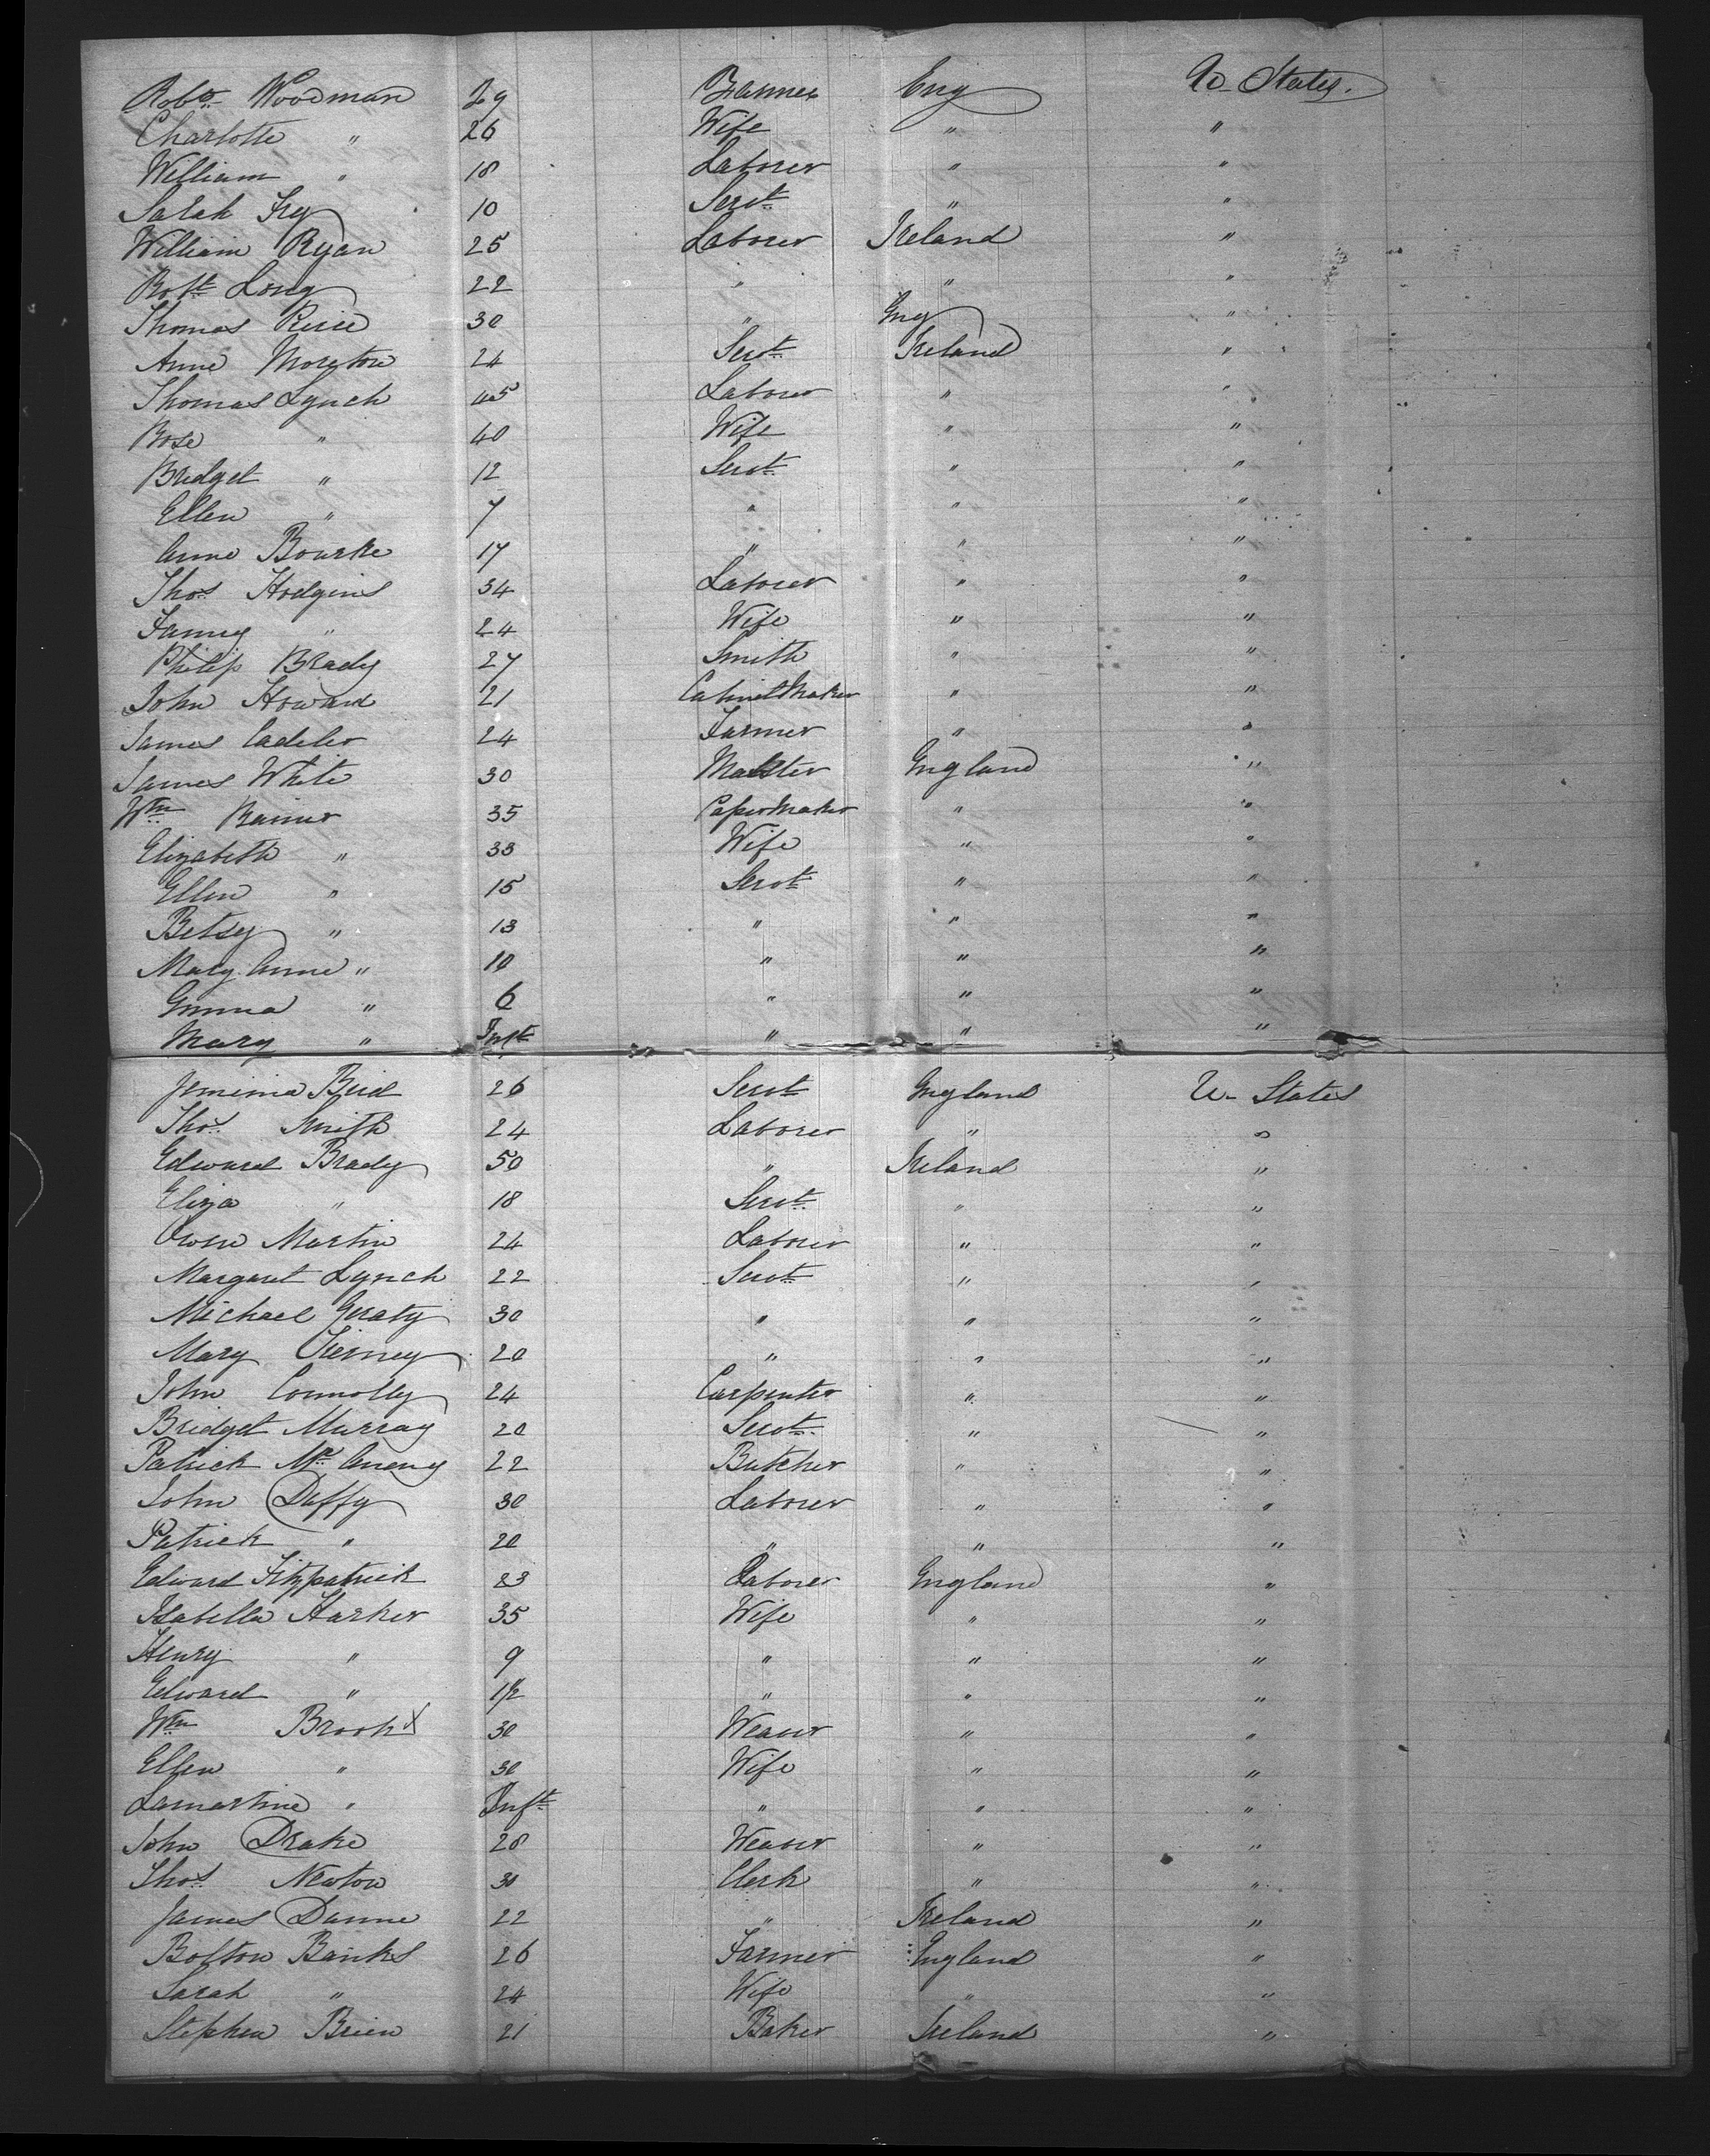 Robt. Woodman 29 Farmer Eng U States.
Charlotte " 26 Wife " "
William " 18 Laborer " "
Sarah Fry 10 Servt. " "
William Ryan 25 Laborer Ireland "
Robt. Long 22 " " "
Thomas 30 " Eng "
Anne Moreton 24 Servt. Ireland "
Thomas Lynch 45 Laborer " "
Rose " 40 Wife " "
Bridget " 12 Servt. " "
Ellen " 7 " " "
Anne Bourke 17 " " "
Thos. Hodgins 34 Laborer " "
Fanny " 24 Wife " "
Philip Brady 27 Smith " "
John Howard 21 CabinetMaker " "
James 24 Farmer " "
James White 30 Malster England "
Wm. 35 PaperMaker " "
Elizabeth " 33 Wife " "
Ellen " 15 Servt. " "
Betsey " 13 " " "
Mary Anne " 10 " " "
Emma " 6 " " "
Mary " Inft. " " "
Jemima 26 Servt England U- States
Thos. Smith 24 Laborer " "
Edward Brady 50 " Ireland "
Eliza " 18 Servt. " "
Owen Martin 24 Laborer " "
Margaret Lynch 22 Servt. " "
Michael Geraty 30 " " "
Mary Tierney 20 " " "
John Connolly 24 Carpenter " "
Bridget Murray 20 Servt. " "
Patrick 22 Butcher " "
John Duffy 30 Laborer " "
Patrick " 20 " " "
Edward Fitzpatrick 23 Laborer England "
Isabella Harker 35 Wife " "
Henry " 9 " " "
Edward " 1½ " " "
Wm. Brook X 30 Weaver " "
Ellen " 30 Wife " "
Lamartine " Inft. " " "
John Drake 28 Weaver " "
Thos. Newton 30 Clerk " "
James Dunne 22 " Ireland "
Bolton Banks 26 Farmer England "
Sarah " 24 Wife " "
Stephen Brien 21 Baker Ireland "